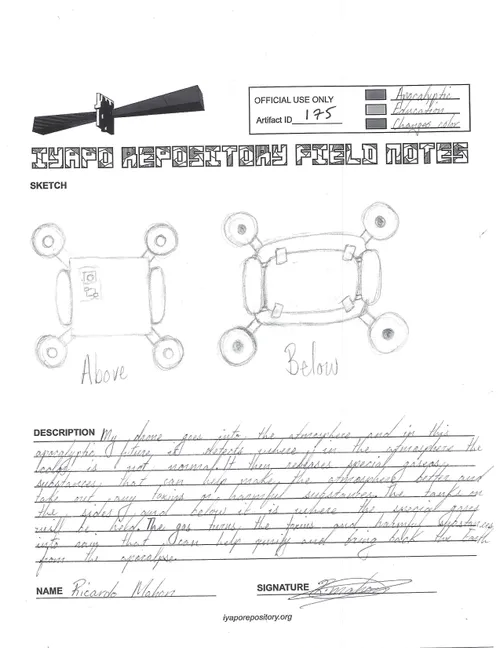 OFFICIAL USE ONLY
Artifact ID 175
Apocalyptic
Education
Changes color
IYAPO REPOSITORY FIELD NOTES
SKETCH
Above
Below
DESCRIPTION My drone goes into the atmosphere and in this
apocalyptic future, it detects where in the atmosphere the
is not normal. It then releases special gaseous
substances that can help make the atmosphere better and
take out any toxins or harmful substances. The tanks on
the sides and below it is where the special gases
will be held. The gas turns the toxins and harmful substances
into rain that can help purify and bring back the Earth
from the apocalypse.
NAME Ricardo
SIGNATURE
iyaporepository.org